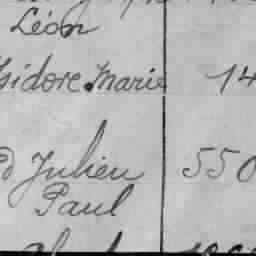 Léon
Isidore Marie 14
d Julien 550
Paul